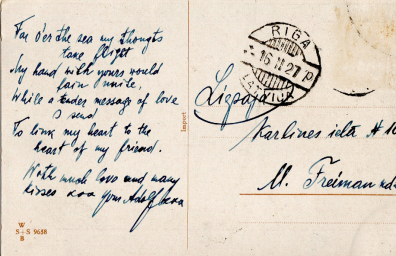 Far o'er the sea my thougts
take flight
My hand with yours would
fain unite,
While a tender message of love
I send
To link my heart to the
heart of my friend.
With much love and many
kisses xxx your Adolf xxx
W
S+S 9658
B
Import
RIGA
16 11 27
LATVIJA
Liepaja
Karlines iela
M. Freiman